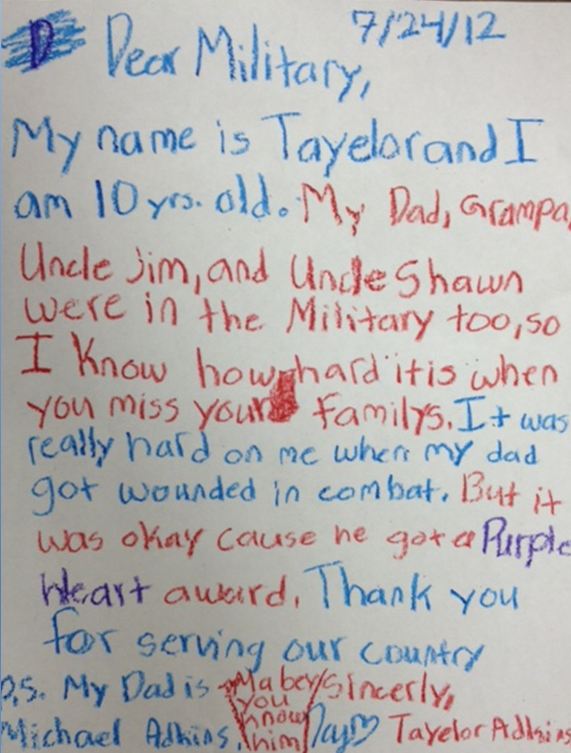 7/24/12
Dear Military,
My name is Tayelor and I
am 10 yrs. old. My Dad, Grampa,
Uncle Jim, and Uncle Shawn
were in the Military too, so
I know how hard it is when
you miss your familys. It was
really hard on me when my dad
got wounded in combat. But it
was okay cause he got a Purple
Heart award. Thank you
for serving our country
P.S. My Dad is
Michael Adkins.
Mabey
you
know
him
Sincerly,
Tayelor Adkins